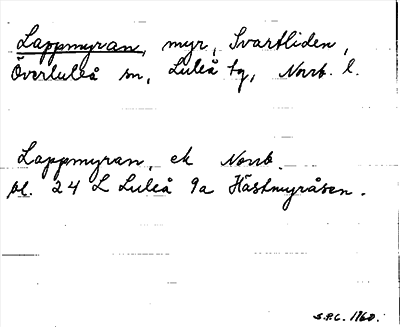 Lappmyran, myr, Svartliden,
Överluleå sn, Luleå tg, Norrb. l.
Lappmyran, ek Norrb.
bl. 24 L Luleå 9a Hästmyråsen.
S.P.G. 1960.